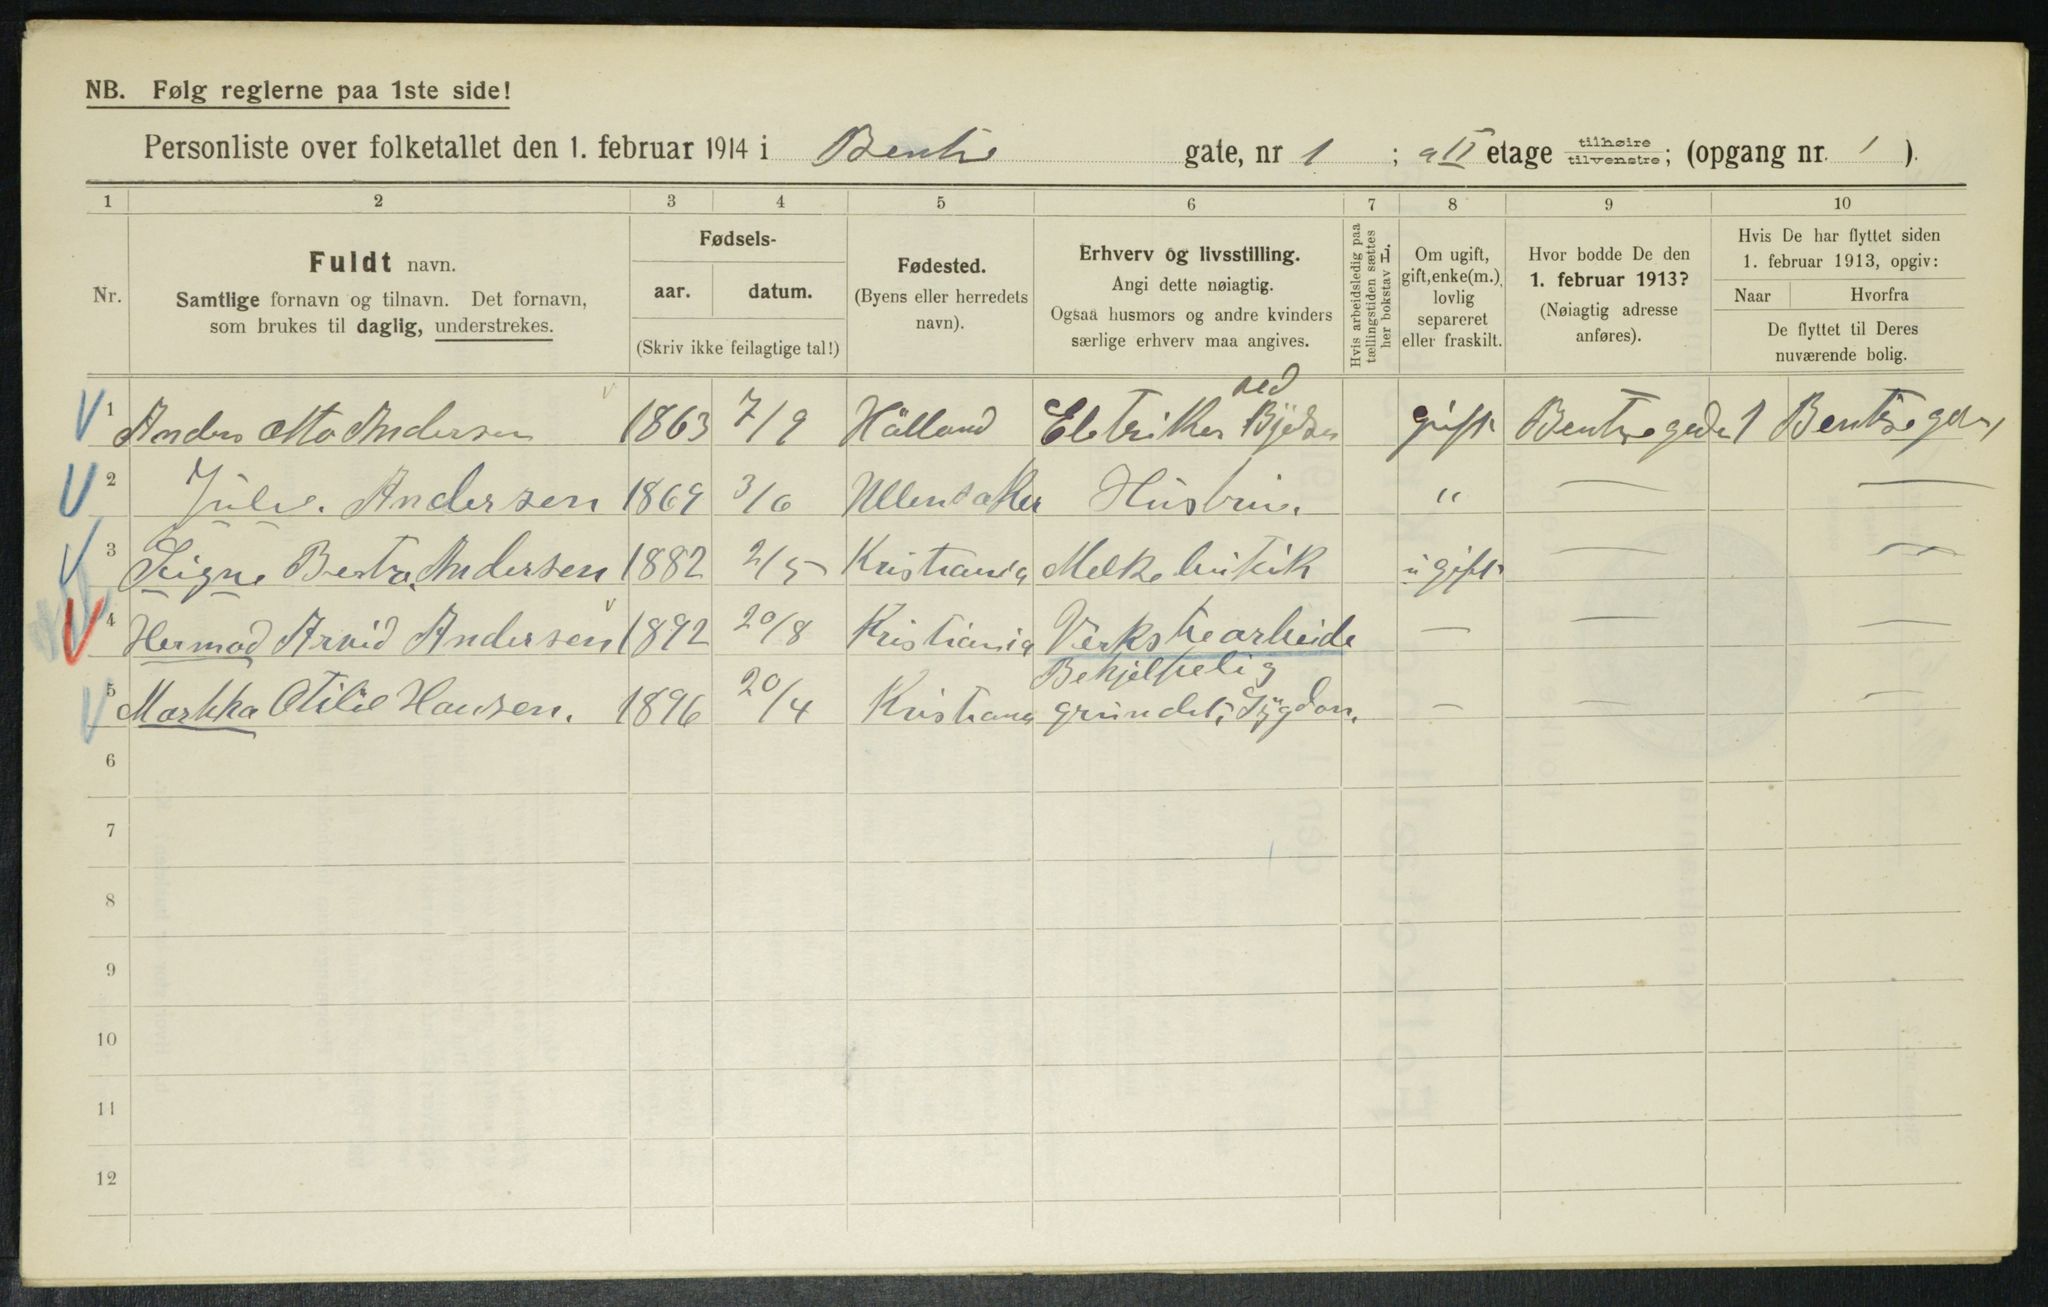 NB. Følg reglerne paa 1ste side!
Personliste over folketallet den 1. februar 1914 i Bentse gate, nr 1 ; II etage tilhøire tilvenstre; (opgang nr. 1 ).
1 2 3 4 5 6 7 8 9 10
Nr.
Fuldt navn.
Samtlige fornavn og tilnavn. Det fornavn,
som brukes til daglig, understrekes.
Fødsels-
aar. datum.
(Skriv ikke feilagtige tal!)
Fødested.
(Byens eller herredets
navn).
Erhverv og livsstilling.
Angi dette nøiagtig.
Ogsaa husmors og andre kvinders
særlige erhverv maa angives.
Hvis arbeidsledig paa
tællingstiden sættes
her bokstav L.
Om ugift,
gift, enke(m.),
lovlig
separeret
eller fraskilt.
Hvor bodde De den
1. februar 1913?
(Nøiagtig adresse
anføres).
Hvis De har flyttet siden
1. februar 1913, opgiv:
Naar Hvorfra
De flyttet til Deres
nuværende bolig.
1 Anders Otto Andersen 1863 7/9 Hålland Eletriker ved gift Bentsegade 1
2 Julie. Andersen 1869 3/6 Ullensaker Hüstrü. " — —
3 Signe Berta Andersen 1882 2/5 Kristiania Melkebutik ugift — —
4 Hermod Arvid Andersen 1892 20/8 Kristiania Verkstearbeide — — —
5 Markha Otilie Hansen. 1896 20/4 Kristiana Behjelpelig
grundet Sygdom. — — —
6
7
8
9
10
11
12